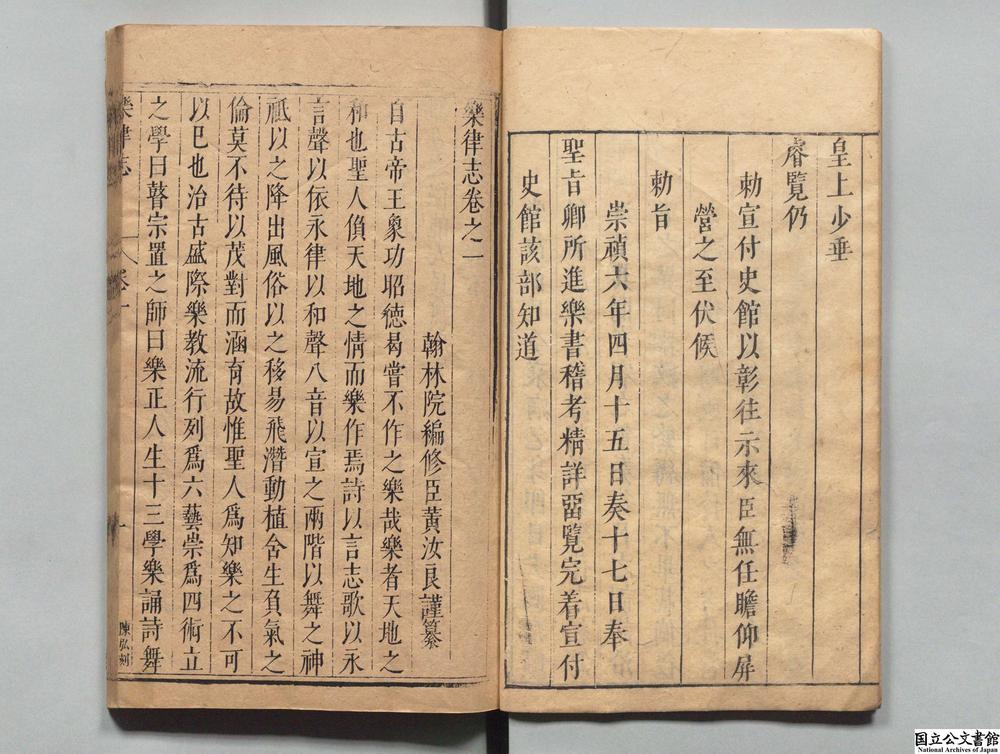 皇上少垂
睿覽仍
勅宣付史館以彰往示來臣無任瞻仰屏
營之至伏候
勅旨
崇禎六年四月十五日奏十七日奉
聖旨卿所進樂書稽考精詳畱覽完着宣付
史館該部知道
樂律志卷之一
翰林院編修臣黃汝良謹纂
自古帝王象功昭德曷嘗不作之樂哉樂者天地之
和也聖人偩天地之情而樂作焉詩以言志歌以永
言聲以依永律以和聲八音以宣之兩階以舞之神
祇以之降出風俗以之移易飛潛動植含生負氣之
倫莫不待以茂對而涵育故惟聖人爲知樂之不可
以已也治古盛際樂教流行列爲六藝崇爲四術立
之學曰瞽宗置之師曰樂正人生十三學樂誦詩舞
樂律志
卷一
一
陳弘刻
国立公文書館
National Archives of Japan